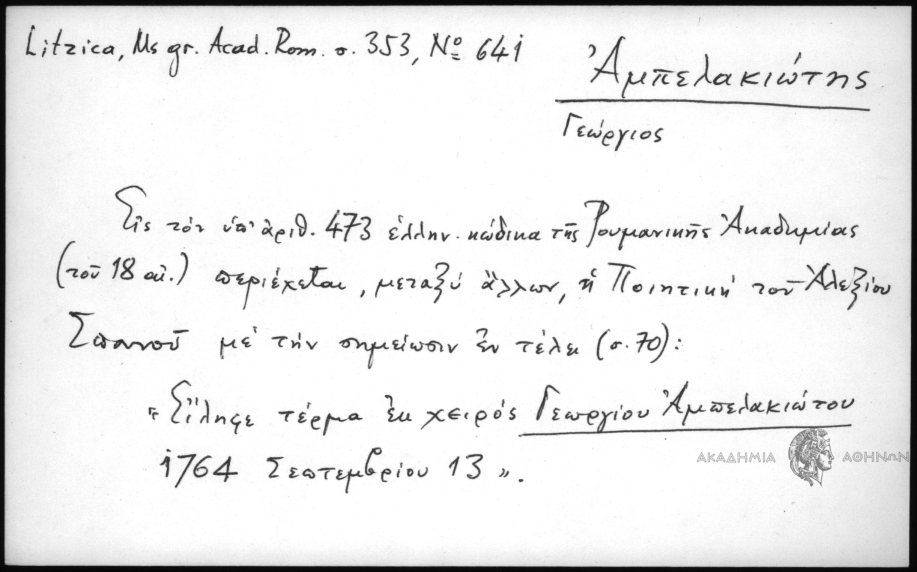 Litzica, Ms gr. Acad. Rom. σ. 353, Nº 641
Ἀμπελακιώτης
Γεώργιος
Εἰς τὸν ὑπ' ἀριθ. 473 ἑλλην. κώδικα τῆς Ρουμανικῆς Ἀκαδημίας
(τοῦ 18 αἰ.) περιέχεται, μεταξὺ ἄλλων, ἡ Ποιητικὴ τοῦ Ἀλεξίου
Σπανοῦ μὲ τὴν σημείωσιν ἐν τέλει (σ. 70):
"Εἴληφε τέρμα ἐκ χειρὸς Γεωργίου Ἀμπελακιώτου
1764 Σεπτεμβρίου 13".
ΑΚΑΔΗΜΙΑ ΑΘΗΝΩΝ